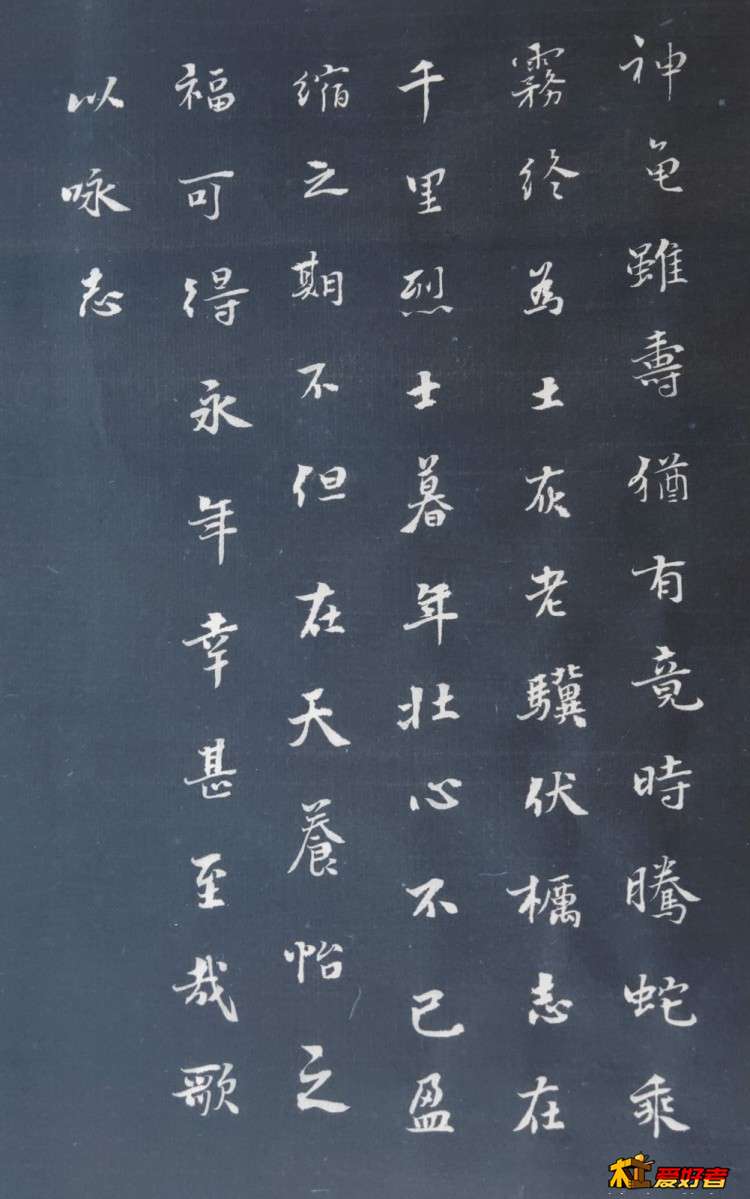 神龟雖壽猶有竟時騰蛇乘
霧终為土灰老驥伏櫔志在
千里烈士暮年壮心不已盈
缩之期不但在天養怡之
福可得永年幸甚至哉歌
以咏志
爱好者